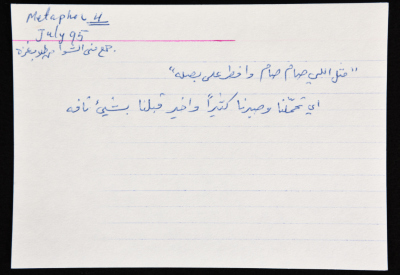 Metaphor 4
July 95
جمع منى الشوا
"مثل اللي صام صام وافطر على بصله"
اي تحمّلنا وصبرنا كثيراً واخيرا قبلنا بشيئ تافه